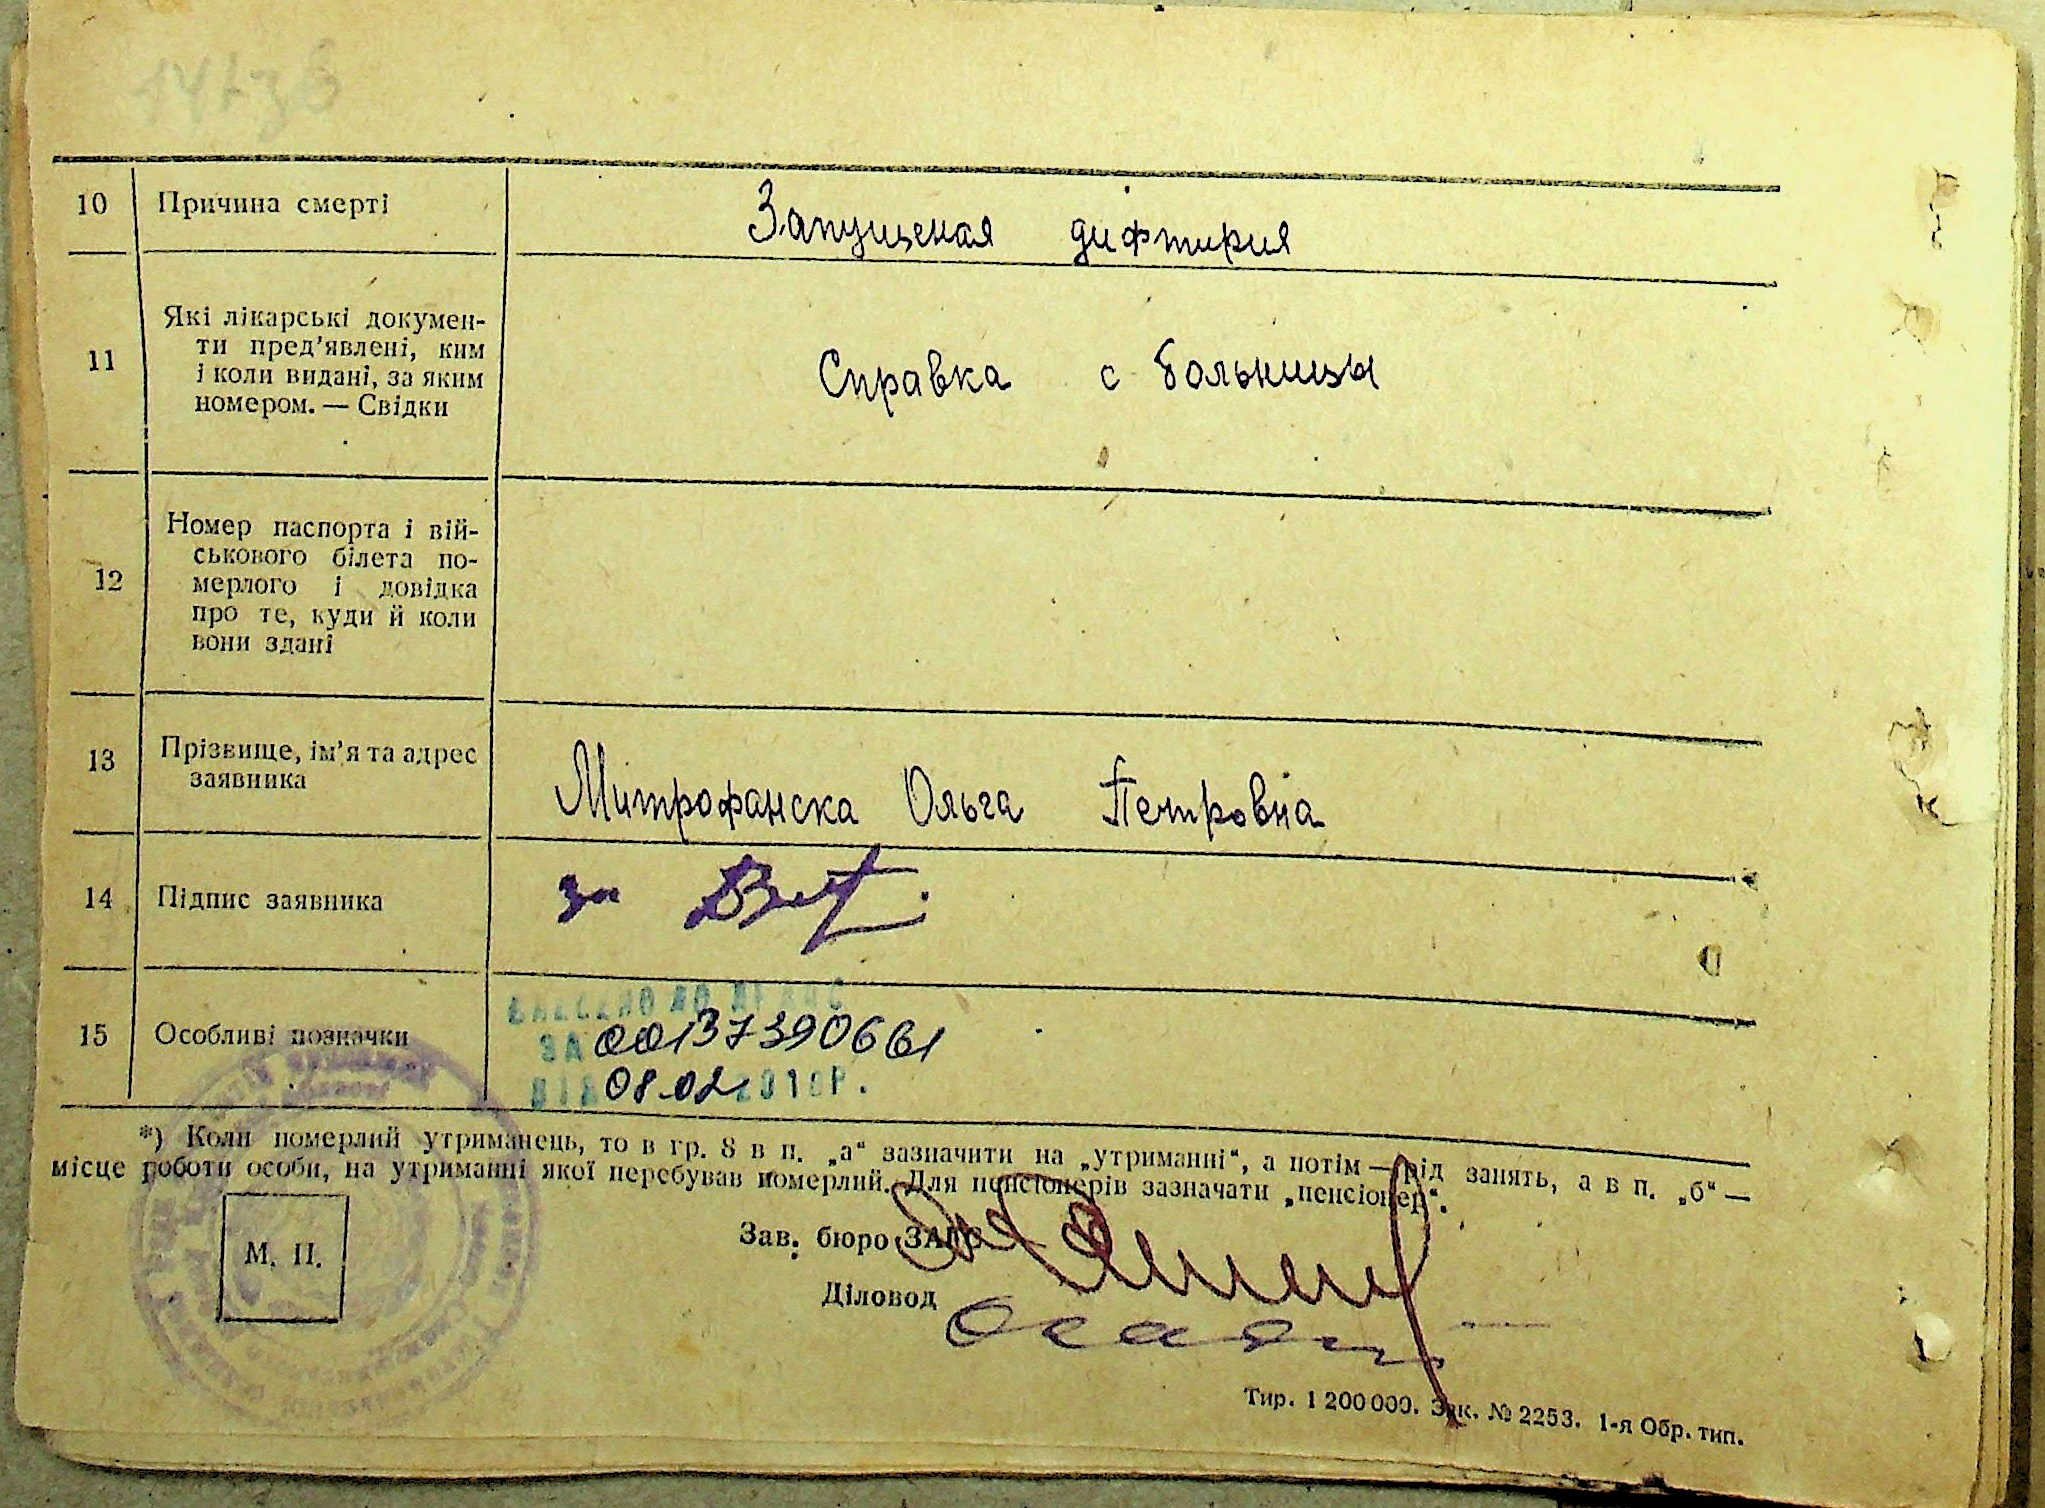 10 Причина смерті Запущеная дифтирия
11 Які лікарські докумен-
ти пред'явлені, ким
і коли видані, за яким
номером. — Свідки
Справка с больницы
12 Номер паспорта і вій-
ськового білета по-
мерлого і довідка
про те, куди й коли
вони здані
13 Прізвище, ім'я та адрес
заявника
Митрофанска Ольга Петровна
14 Підпис заявника за
15 Особливі позначки
ЗА 00137390661
ВІД 08.02 201 Р.
*) Коли померлий утриманець, то в гр. 8 в п. „а“ зазначити на „утриманні“, а потім — рід занять, а в п. „б“ —
місце роботи особи, на утриманні якої перебував померлий. Для пенсіонерів зазначати „пенсіонер“.
М. П.
Зав. бюро ЗАГС
Діловод
Тир. 1 200 000. Зак. № 2253. 1-я Обр. тип.